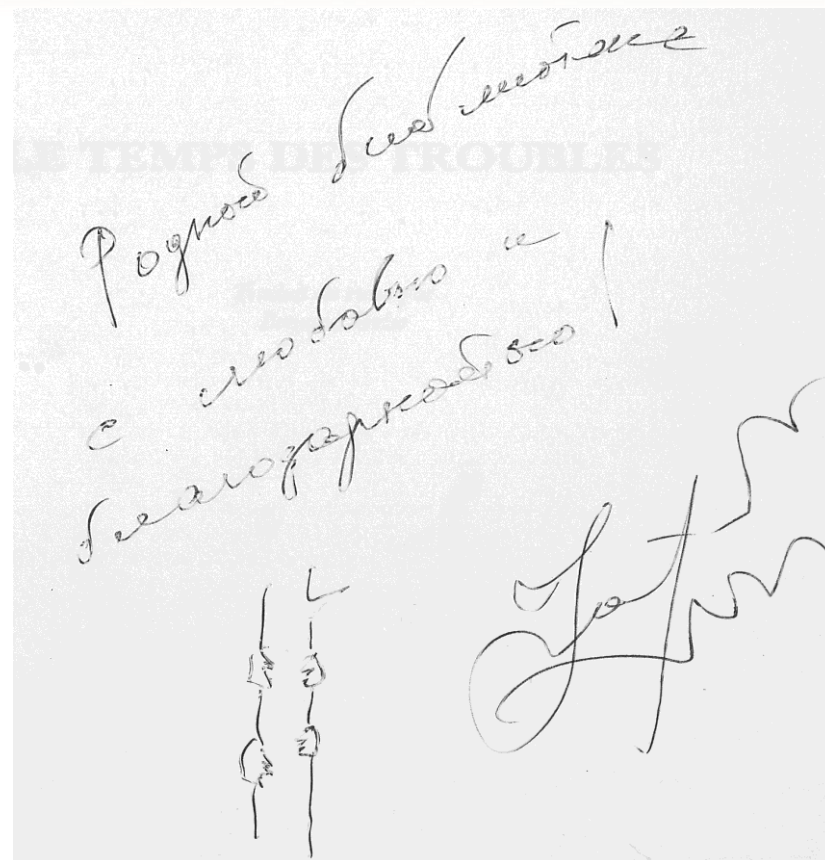 LE TEMPS DES TROUBLES
Родной библиотеке
с любовью и
благодарностью!